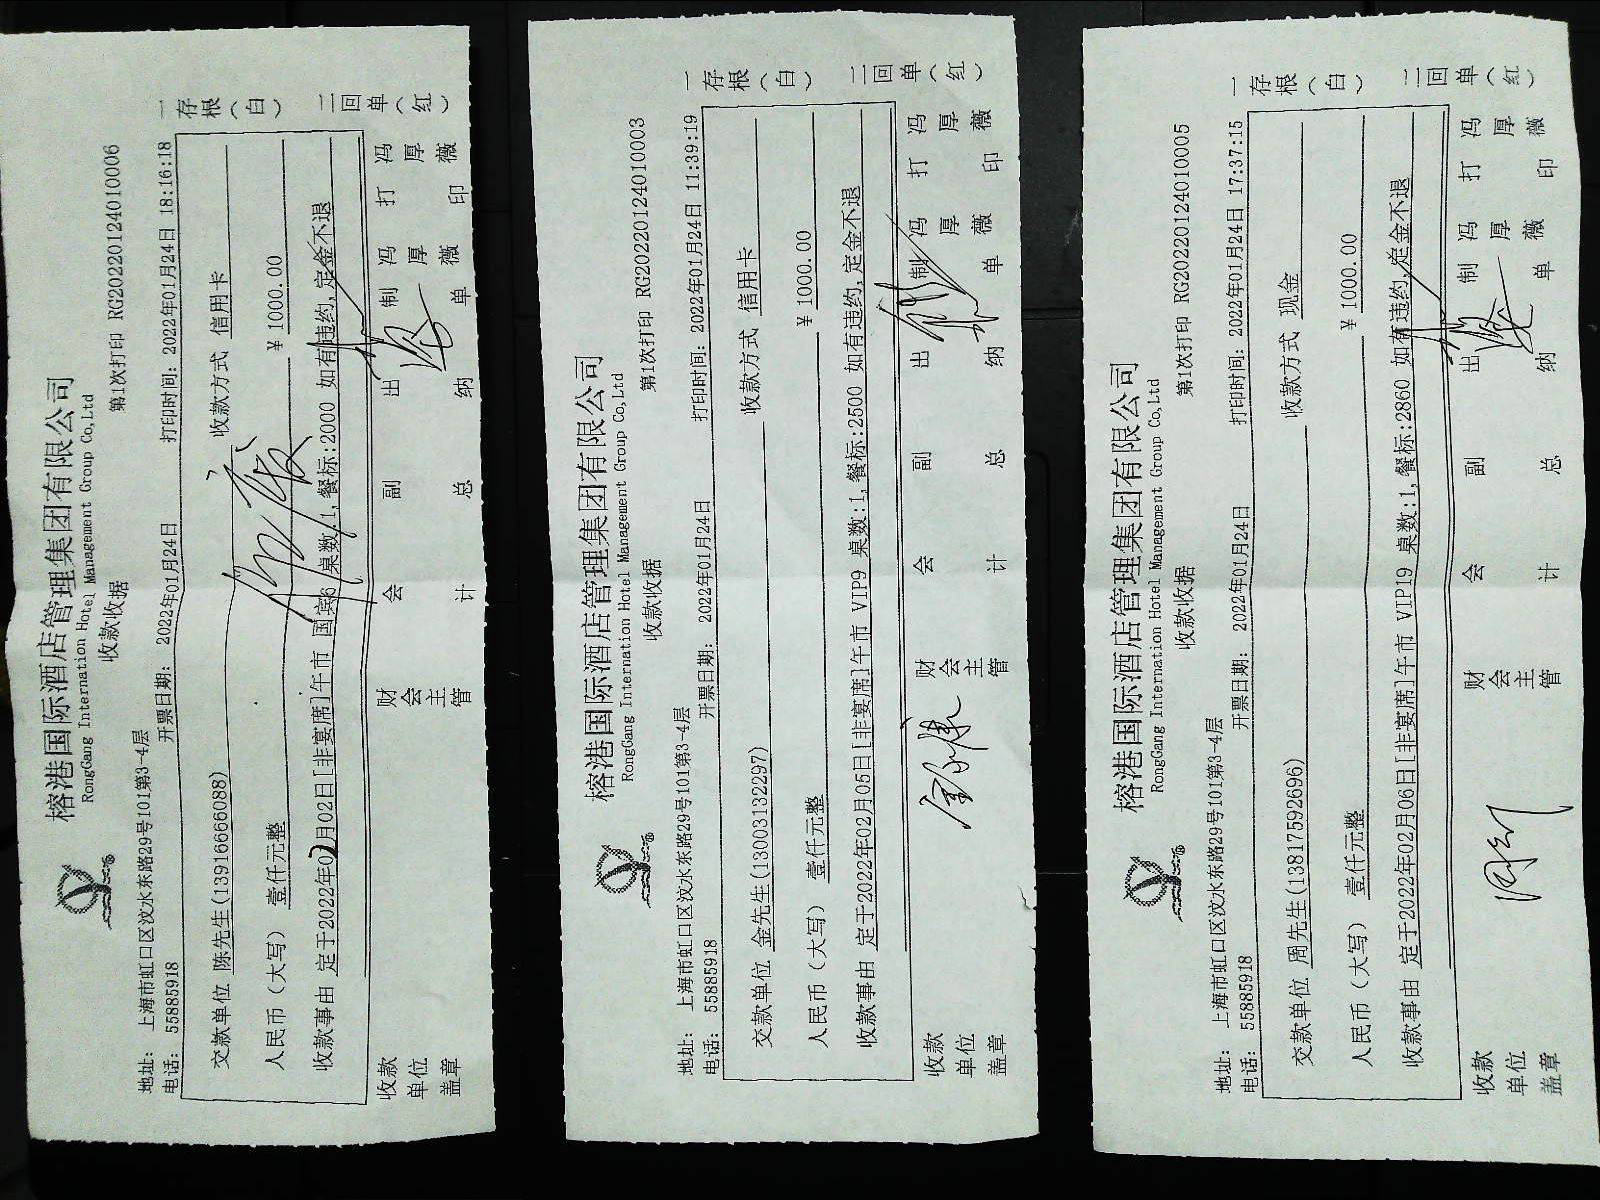 榕港国际酒店管理集团有限公司
RongGang Internation Hotel Management Group Co,Ltd
收款收据
第1次打印 RG20220124010006
地址： 上海市虹口区汶水东路29号101第3-4层
电话： 55885918
开票日期： 2022年01月24日
打印时间：2022年01月24日 18:16:18
交款单位 陈先生(13916666088)
收款方式 信用卡
人民币（大写） 壹仟元整
￥1000.00
收款事由 定于2022年02月02日[非宴席]午市 国宾6 桌数:1,餐标:2000 如有违约,定金不退
收款单位盖章
财会主管
会计
副总
出纳
制单 冯厚薇
打印 冯厚薇
一存根（白）
二回单（红）
榕港国际酒店管理集团有限公司
RongGang Internation Hotel Management Group Co,Ltd
收款收据
第1次打印 RG20220124010003
地址： 上海市虹口区汶水东路29号101第3-4层
电话： 55885918
开票日期： 2022年01月24日
打印时间：2022年01月24日 11:39:19
交款单位 金先生(13003132297)
收款方式 信用卡
人民币（大写） 壹仟元整
￥1000.00
收款事由 定于2022年02月05日[非宴席]午市 VIP9 桌数:1,餐标:2500 如有违约,定金不退
收款单位盖章
财会主管
会计
副总
出纳
制单 冯厚薇
打印 冯厚薇
一存根（白）
二回单（红）
榕港国际酒店管理集团有限公司
RongGang Internation Hotel Management Group Co,Ltd
收款收据
第1次打印 RG20220124010005
地址： 上海市虹口区汶水东路29号101第3-4层
电话： 55885918
开票日期： 2022年01月24日
打印时间：2022年01月24日 17:37:15
交款单位 周先生(13817592696)
收款方式 现金
人民币（大写） 壹仟元整
￥1000.00
收款事由 定于2022年02月06日[非宴席]午市 VIP19 桌数:1,餐标:2860 如有违约,定金不退
收款单位盖章
财会主管
会计
副总
出纳
制单 冯厚薇
打印 冯厚薇
一存根（白）
二回单（红）